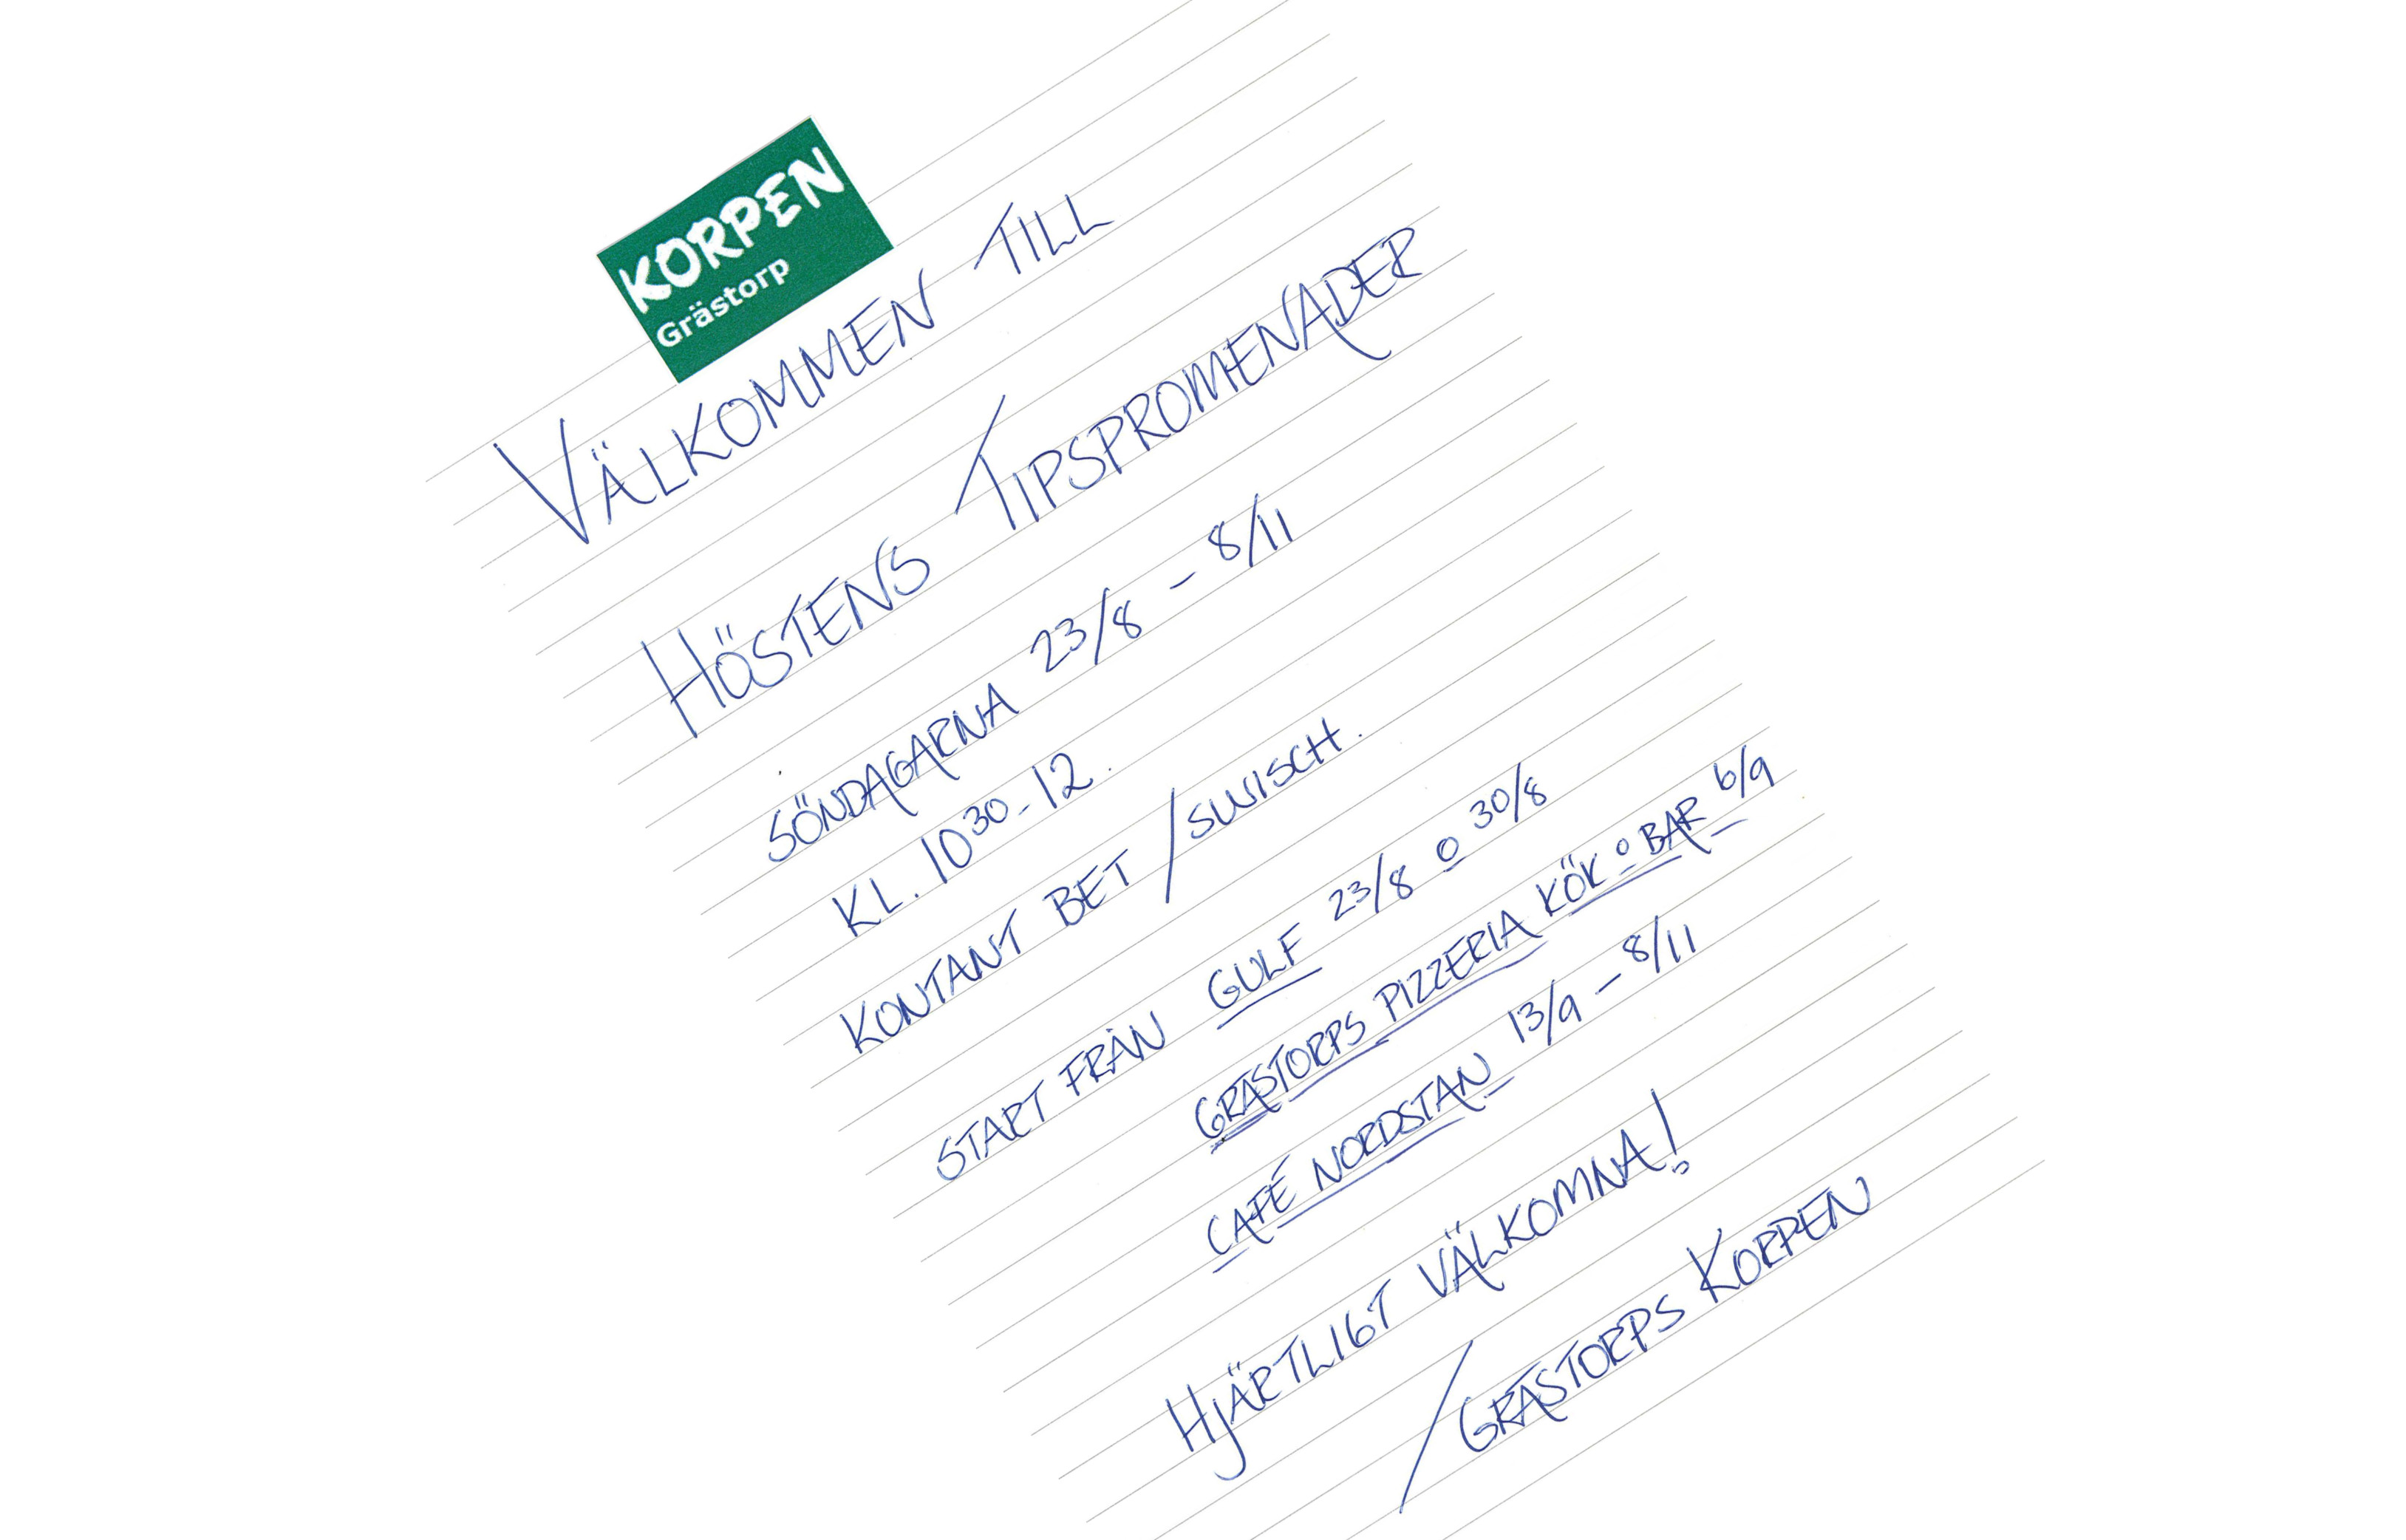 KORPEN
Grästorp
VÄLKOMMEN TILL
HÖSTENS TIPSPROMENADER
SÖNDAGARNA 23/8 - 8/11
KL. 10³⁰ - 12.
KONTANT BET / SWISCH.
START FRÅN GULF 23/8 o 30/8
GRÄSTORPS PIZZERIA KÖK o BAR 6/9
CAFÉ NORDSTAN 13/9 - 8/11
HJÄRTLIGT VÄLKOMNA!
/ GRÄSTORPS KORPEN